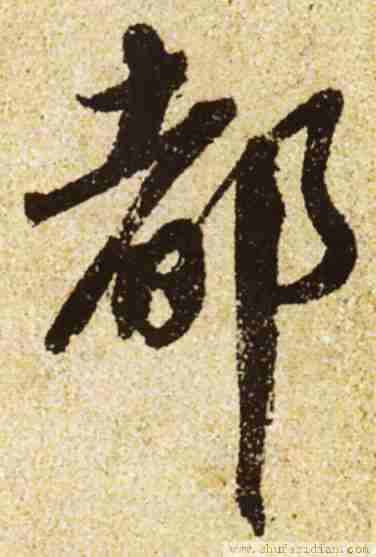 都
www.shufazidian.com